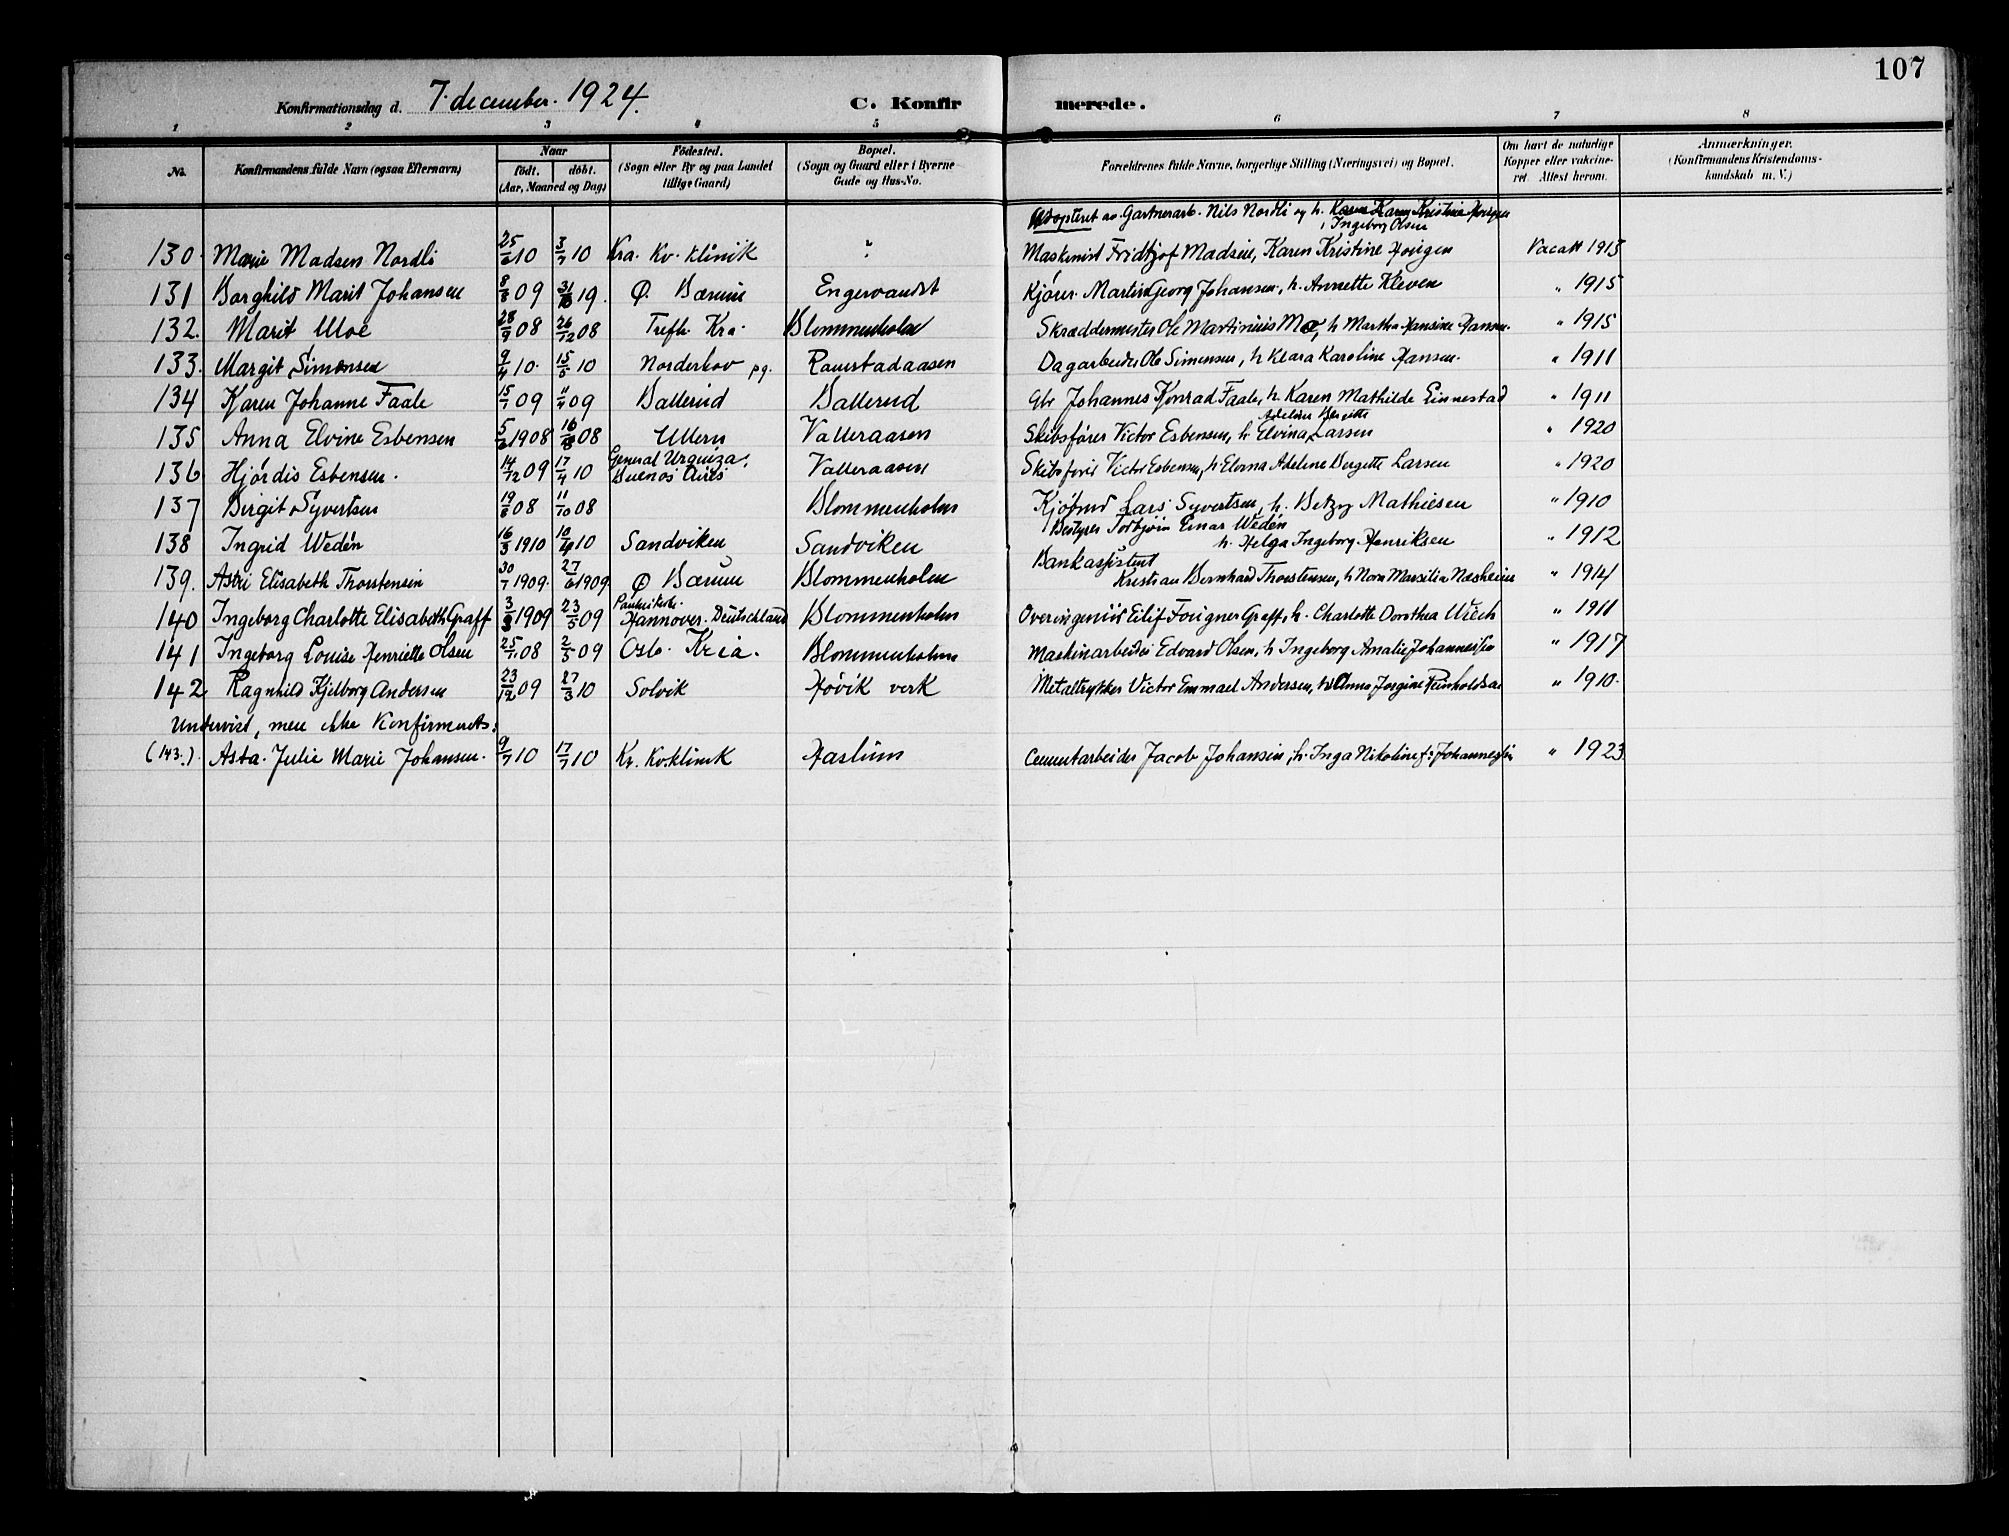 107
Konfirmationsdag d. 7. december. 1924.
C. Konfirmerede.
1 2 3 4 5 6 7 8
No. Konfirmandens fulde Navn (ogsaa Efternavn) Naar födt. döbt. (Aar, Maaned og Dag) Födested. (Sogn eller By og paa Landet tillige Gaard) Bopæl. (Sogn og Gaard eller i Byerne Gade og Hus-No. Forældrenes fulde Navne, borgerlige Stilling (Næringsvei) og Bopæl. Om havt de naturlige Kopper eller vaccineret Attest herom. Anmærkninger. (Konfirmandens Kristendomskundskab m. V.)
Adopteret av Gartnerarb. Nils Nordli og h. Karen Kristine Hougen
Ingeborg Olsen
130 Marie Madsen Nordli 25/6 10 3/7 10 Kra. Kv. klinik " Maskinist Fridtjof Madsen, Karen Kristine Hougen Vacatt 1915
131 Borghild Marit Johansen 8/8 09 31/10 19. Ø. Bærum Engervandet Kjører Martin Georg Johansen, h. Annette Kleven " 1915
132. Marit Moe 28/9 08 26/12 08 Trefk. Kra. Blommenholm Skræddermester Ole Martinius Moe, h Martha Hansine Hansen. " 1915
133. Margit Simensen 9/4 10. 15/5 10 Norderhov pg. Ramstadaasen Dagarbeider Ole Simensen, h Klara Karoline Hansen. " 1911
134 Karen Johanne Faale 15/1 09 11/4 09 Ballerud Ballerud Gbr Johannes Konrad Faale, h Karen Mathilde Linnestad " 1911
Adeline Bergitte
135 Anna Elvine Esbensen 5/6 1908 16/8 08 Ullern Valleraasen Skibsfører Victor Esbensen, h. Elvina Larsen " 1920
136 Hjørdis Esbensen. 14/12 09 17/4 10 General Urquiza, Buenos Aires Valleraasen Skibsfører Victor Esbensen, h. Elvina Adeline Bergitte Larsen " 1920
137 Birgit Syvertsen 19/8 08 11/10 08 Blommenholm Kjøbmd Lars Syvertsen, h. Betzy Mathiesen " 1910
138 Ingrid Wedén 16/3 1910 10/4 10 Sandviken Sandviken Bestyrer Torbjørn Einar Wedén h. Helga Ingeborg Henriksen " 1912
139. Astri Elisabeth Thorstensen 30/7 1909. 27/6 1909 Ø Bærum Blommenholm Bankassistent Kristian Bernhard Thorstensen, h Nora Marsilia Næsheim " 1914
140 Ingeborg Charlotte Elisabeth Graff 3/3 1909 23/5 09 Hannover. Deutschland Blommenholm Overingeniør Eilif Fougner Graff, h. Charlotte Dorothea Wrech " 1911
141 Ingeborg Louise Henriette Olsen 25/11 08 2/5 09 Oslo. Kria. Blommenholm Maskinarbeider Edvard Olsen, h Ingeborg Amalie Johannessen " 1917
142 Ragnhild Kjelborg Andersen 23/12 09 27/3 10 Solvik Høvik verk Metaltrykker Victor Emmael Andersen, h Anna Jorgine Reinholdsen " 1910.
Undervist, men ikke Konfirmerets:
(143.) Asta. Julie Marie Johansen. 9/7 10 17/7 10 Kr. Kv.klinik Haslum Cementarbeider Jacob Johansen, h. Inga Nikoline f: Johannessen " 1923